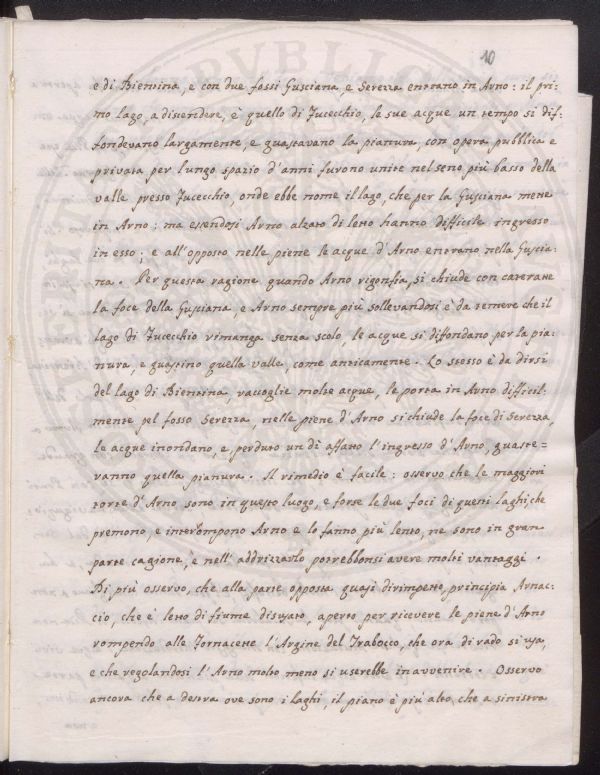 10
e di Bientina, e con due fossi Gusciana, e Serezza entrano in Arno: il pri-
mo lago, a discendere, è quello di Fucecchio, le sue acque un tempo si dif-
fondevano largamente, e guastavano la pianura, con opera pubblica e
privata per lungo spazio d'anni furono unite nel seno più basso della
valle presso Fucecchio, onde ebbe nome il lago, che per la Gusciana mette
in Arno; ma essendosi Arno alzato di letto hanno difficile ingresso
in esso; e all'opposto nelle piene le acque d'Arno entrano nella Guscia-
na. Per questa ragione quando Arno rigonfia, si chiude con cateratte
la foce della Gusciana, e Arno sempre più sollevandosi è da temere che il
lago di Fucecchio rimanga senza scolo, le acque si diffondano per la pia-
nura, e guastino quella valle, come anticamente. Lo stesso è da dirsi
del lago di Bientina, raccoglie molte acque, le porta in Arno difficil-
mente pel fosso Serezza, nelle piene d'Arno si chiude la foce di Serezza,
le acque inondano e perduto un dì affatto l'ingresso d'Arno, guaste=
ranno quella pianura. Il rimedio è facile: osservo che le maggiori
torte d'Arno sono in questo luogo, e forse le due foci di questi laghi, che
premono, e interrompono Arno e lo fanno più lento, ne sono in gran
parte cagione, e nell'addrizzarlo potrebbonsi avere molti vantaggi.
Di più osservo, che alla parte opposta quasi dirimpetto, principia Arnac-
cio, che è letto di fiume disusato, aperto per ricevere le piene d'Arno
rompendo alle Fornacette l'Argine del Trabocco, che ora di rado si usa,
e che regolandosi l'Arno molto meno si userebbe in avvenire. Osservo
ancora che a destra ove sono i laghi, il piano è più alto, che a sinistra